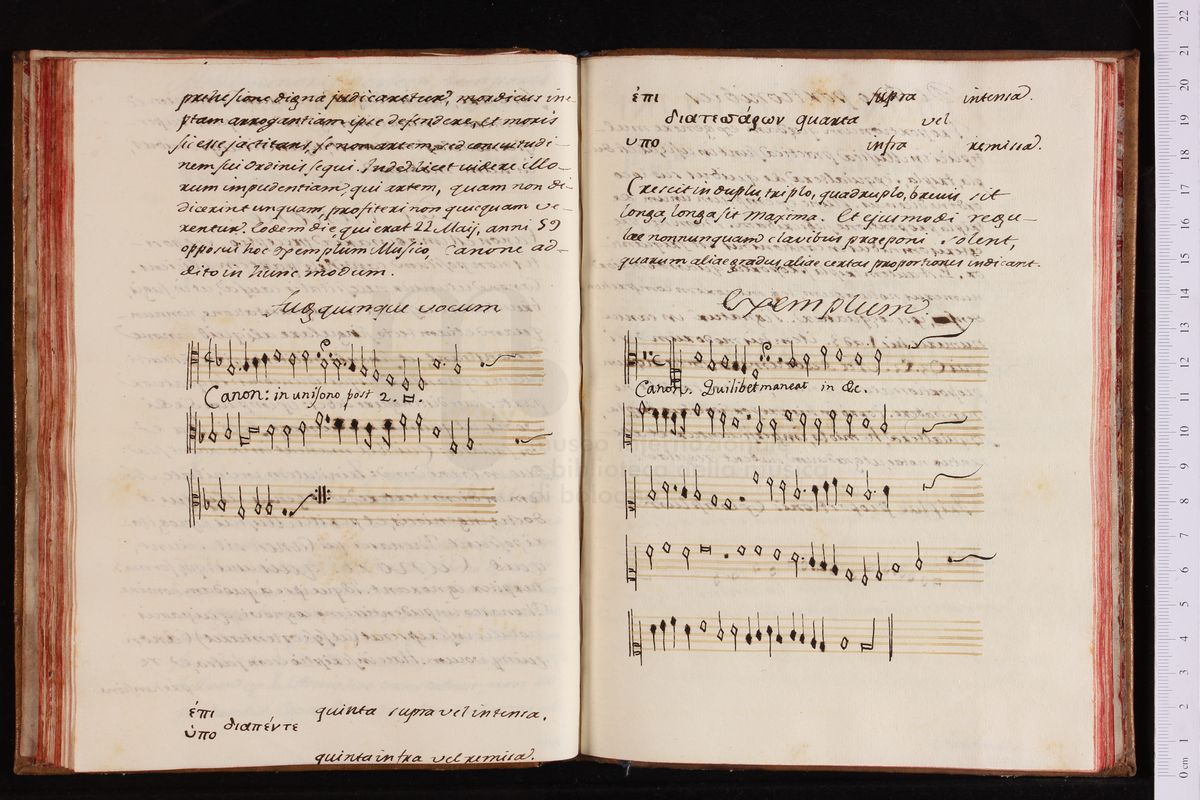 prehesione digna judicaretur, mordicus ine-
ptam arrogantiam ipse defendere, et moris
sic esse jactitans, se non artem, sed consuetudi-
nem sui ordinis sequi. Inde licet videre illo-
rum impudentiam, qui artem, quam non di-
dicerint unquam, profiteri non quaquam ve-
rentur. Eodem die qui erat 22 Maij, anni 59
opposui hoc Exemplum Musico, Canone ad-
dito in hunc modum.
Fuga quinque vocum
Canon: in unisono post 2.
ἐπι
διαπέντε
ὑπο
quinta supra vel intensa.
quinta infra vel remissa.
ἐπι supra intensa.
διατεσσάρων quarta vel
υπο infra remissa.
Crescit in duplu, triplo, quadruplo, brevis sit
longa, longa sit maxima. Et ejusmodi regu-
lae nonnunquam clavibus praeponi solent,
quarum aliae gradus, aliae certas proportiones indicant.
Exemplum.
Canon. Quilibet maneat in &c.
museo internazionale
e biblioteca della musica
di bologna
0 cm 1 2 3 4 5 6 7 8 9 10 11 12 13 14 15 16 17 18 19 20 21 22